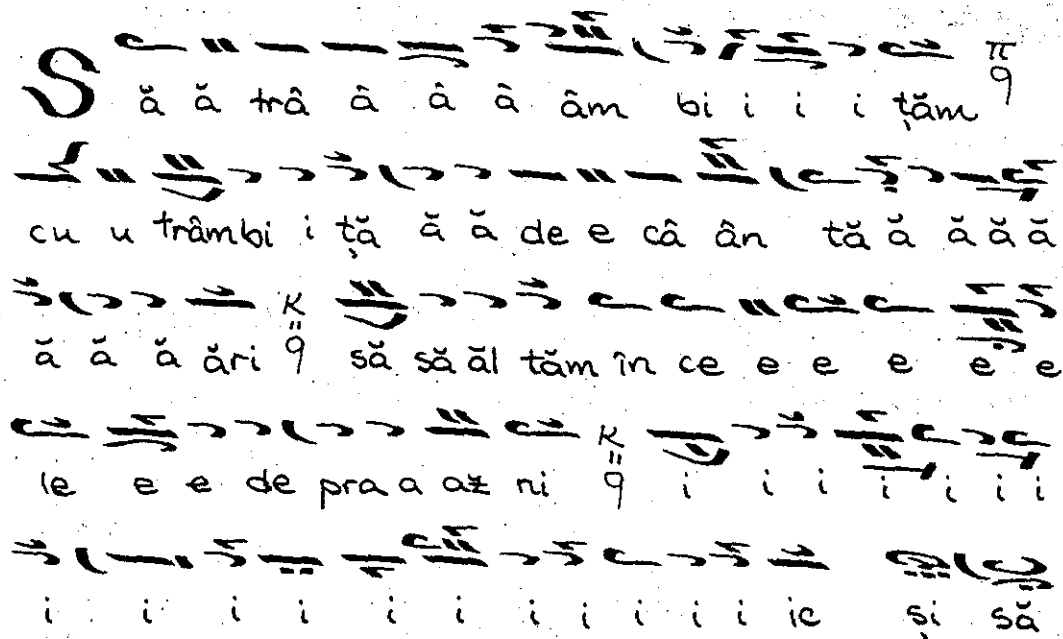 Să ă trâ â â â âm bi i i i țăm π q
cu u trâmbi i ță ă ă de e câ ân tă ă ă ă ă
ă ă ă ări κ q să să ăl tăm în ce e e e e e
le e e de pra a az ni κ q i i i i i i i
i i i i i i i i i i i ie și să